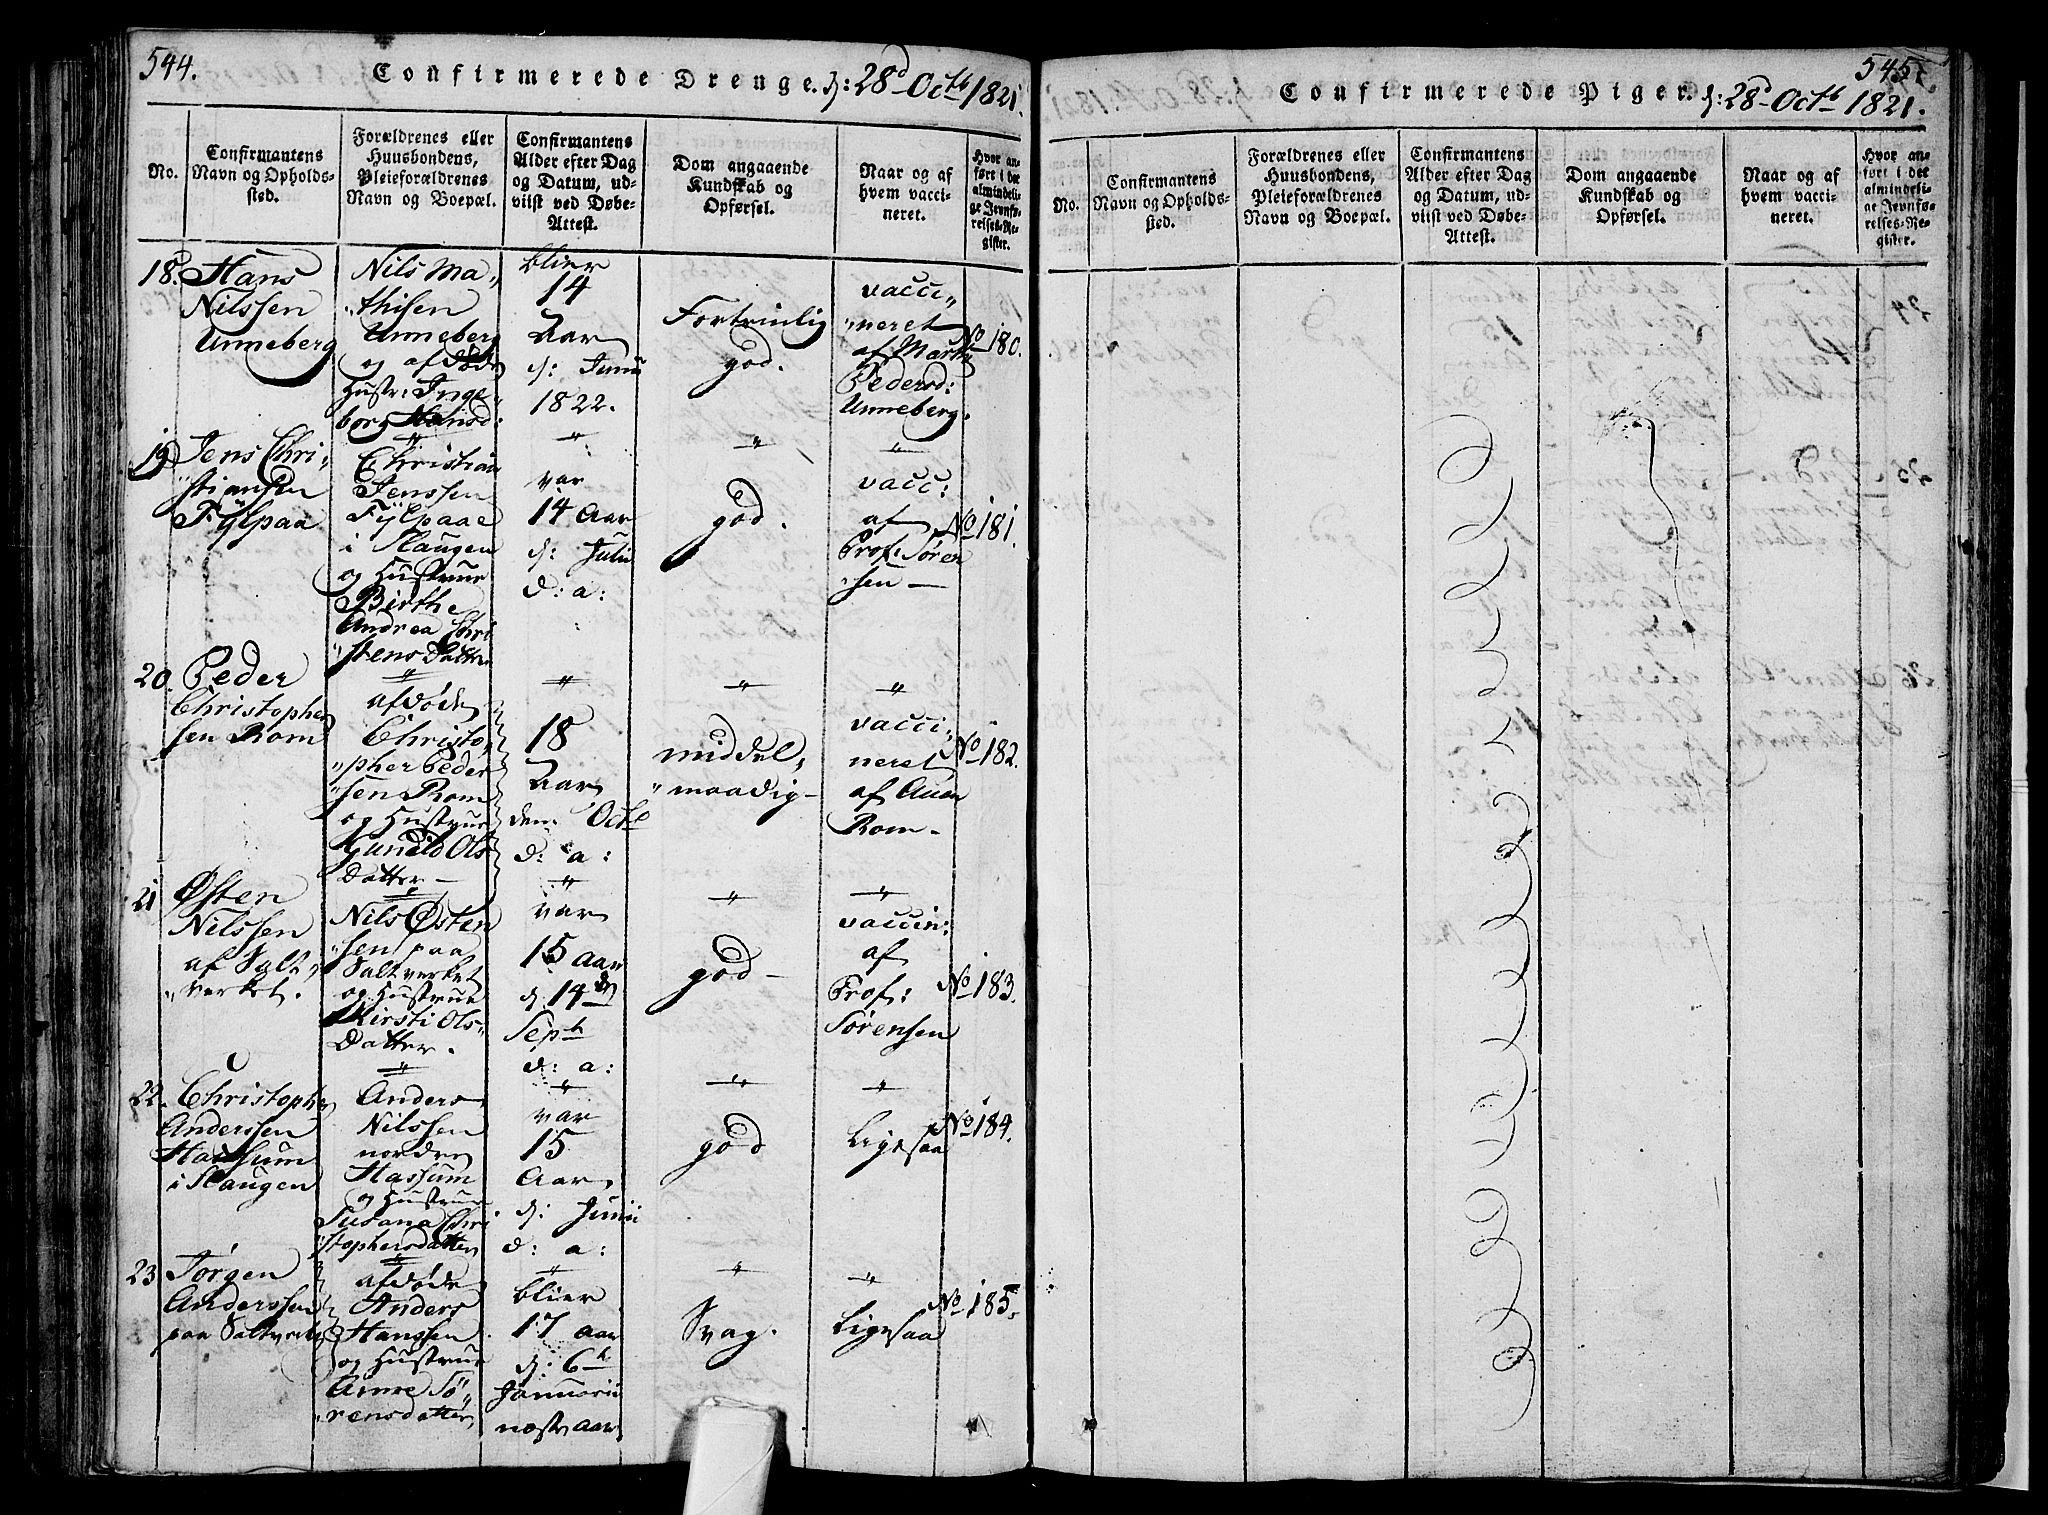 544.
Confirmerede Drenge. d: 28d Octb 1821.
No.
Confirmantens
Navn og Opholds-
sted.
Forældrenes eller
Huusbondens,
Pleieforældrenes
Navn og Boepæl.
Confirmantens
Alder efter Dag
og Datum, ud-
viist ved Døbe-
Attest.
Dom angaaende
Kundskab og
Opførsel.
Naar og af
hvem vacci-
neret.
Hvor an-
ført i det
almindeli-
ge Jevnfø-
relses-Re-
gister.
18.
Hans
Nilssen
Unneberg
Nils Ma-
"thisen
Unneberg
og afdøde
Hustr: Inge-
borg Hansd:
blier
14
Aar
d: Junii
1822.
Fortrinlig
god.
vacci,
"neret
af
Pedersd:
Unneberg.
No 180.
19
Jens Chri-
"stiansen
Fÿlpaa
Christian
Jenssen
Fÿlpaae
i Slaugen
og Hustrue
Birthe
Andrea Chri
"stens Datter
"
var
14 Aar
d: Julii
d: a:
"
god.
"
vacc:
af
Prof: Søren
"sen —
No 181.
20.
Peder
Christopher
sen Rom
"
afdøde
Christo,
"pher Peder
"sen Rom
og Hustrue
Gunild Ols
Datter —
"
18
Aar
den Octb
d: a:
"
middel,
"maadig —
"
vacci,
neret
af
Rom —
No 182.
21
Østen
Nilssen
af Salt,
"verket.
"
Nils Østen
"sen paa
Saltverket
og Hustrue
Kirsti Ols-
Datter.
"
var
15 Aar
d. 14d
Sepb
d: a:
"
god —
"
vaccin:
af
Prof:
Sørensen
No 183.
22.
Christopher
Anderssen
Hassum
i Slaugen
"
Anders
Nilssen
nordre
Hassum
og Hustrue
Susana Chri
"stophersdatter
"
var
15
Aar
d: Junii
d: a:
"
god
"
Ligesaa
No 184.
23
Jørgen
Anderssen
paa Saltverk
"
afdøde
Anders
Hanssen
og Hustrue
Anne Sø
"rensdatter
"
blier
17 Aar
d: 6th
Januarii
næste Aar
"
Svag.
"
Ligesaa
No 185.
545.
Confirmerede Piger. d: 28d Octb 1821.
No.
Confirmantens
Navn og Opholds-
sted.
Forældrenes eller
Huusbondens,
Pleieforældrenes
Navn og Boepæl.
Confirmantens
Alder efter Dag
og Datum, ud-
viist ved Døbe-
Attest.
Dom angaaende
Kundskab og
Opførsel.
Naar og af
hvem vacci-
neret.
Hvor an-
ført i det
almindeli-
ge Jevnfø-
relses-Re-
gister.